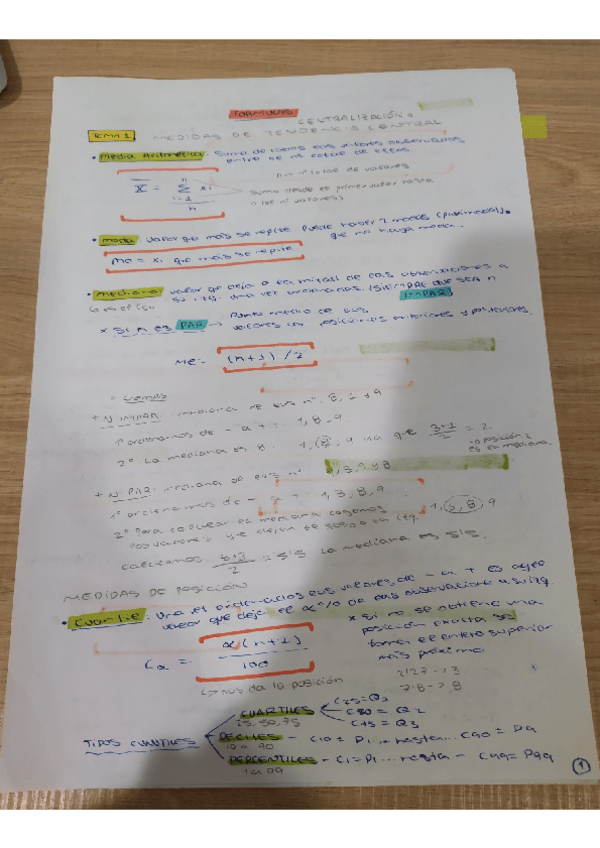 FORMULAS
CENTRALIZACIÓN
TEMA 1 MEDIDAS DE TENDENCIA CENTRAL
• Media Aritmética: Suma de todos los valores observados
entre el nº total de ellos.
X̄ = Σ xi / n
n = nº total de valores
i=1
suma desde el primer valor hasta
n (el nº valores)
• Moda: Valor que más se repite. Puede haber 2 modas (plurimodal) o
que no haya moda...
Mo = xi que más se repite
• Mediana: valor que deja a la mitad de las observaciones a
su izq. una vez ordenadas. (SIEMPRE QUE SEA n
IMPAR)
* Si n es PAR → Punto medio de los
valores en posiciones anteriores y posteriores.
Me = (n+1)/2
+ N IMPAR: mediana de los nº: 8, 1 y 9
1º ordenamos de - a +: 1, 8, 9
2º La mediana es 8: 1, (8), 9 ya que (3+1)/2 = 2
la posición 2
es la mediana
+ N PAR: mediana de los nº 1, 3, 9 y 8
1º ordenamos de - a +: 1, 3, 8, 9
2º Para calcular la mediana cogemos 1, 3, 8, 9
los valores que dejen el 50% a su izq.
calculamos (8+3)/2 = 5'5 La mediana es 5'5
MEDIDAS DE POSICIÓN
• Cuantil: Una vez ordenados los valores de - a + es aquel
valor que deja el α% de las observaciones a su izq.
Cα = α(n+1) / 100
↳ nos da la posición
* si no se obtiene una
posición exacta se
toma el entero superior
más próximo.
2'27 → 3
7'8 → 8
TIPOS CUANTILES
CUARTILES
25, 50, 75
C25 = Q1
C50 = Q2
C75 = Q3
DECILES - C10 = D1... resta... C90 = D9
10 a 90
PERCENTILES - C1 = P1... resta - C99 = P99
1 a 99
1